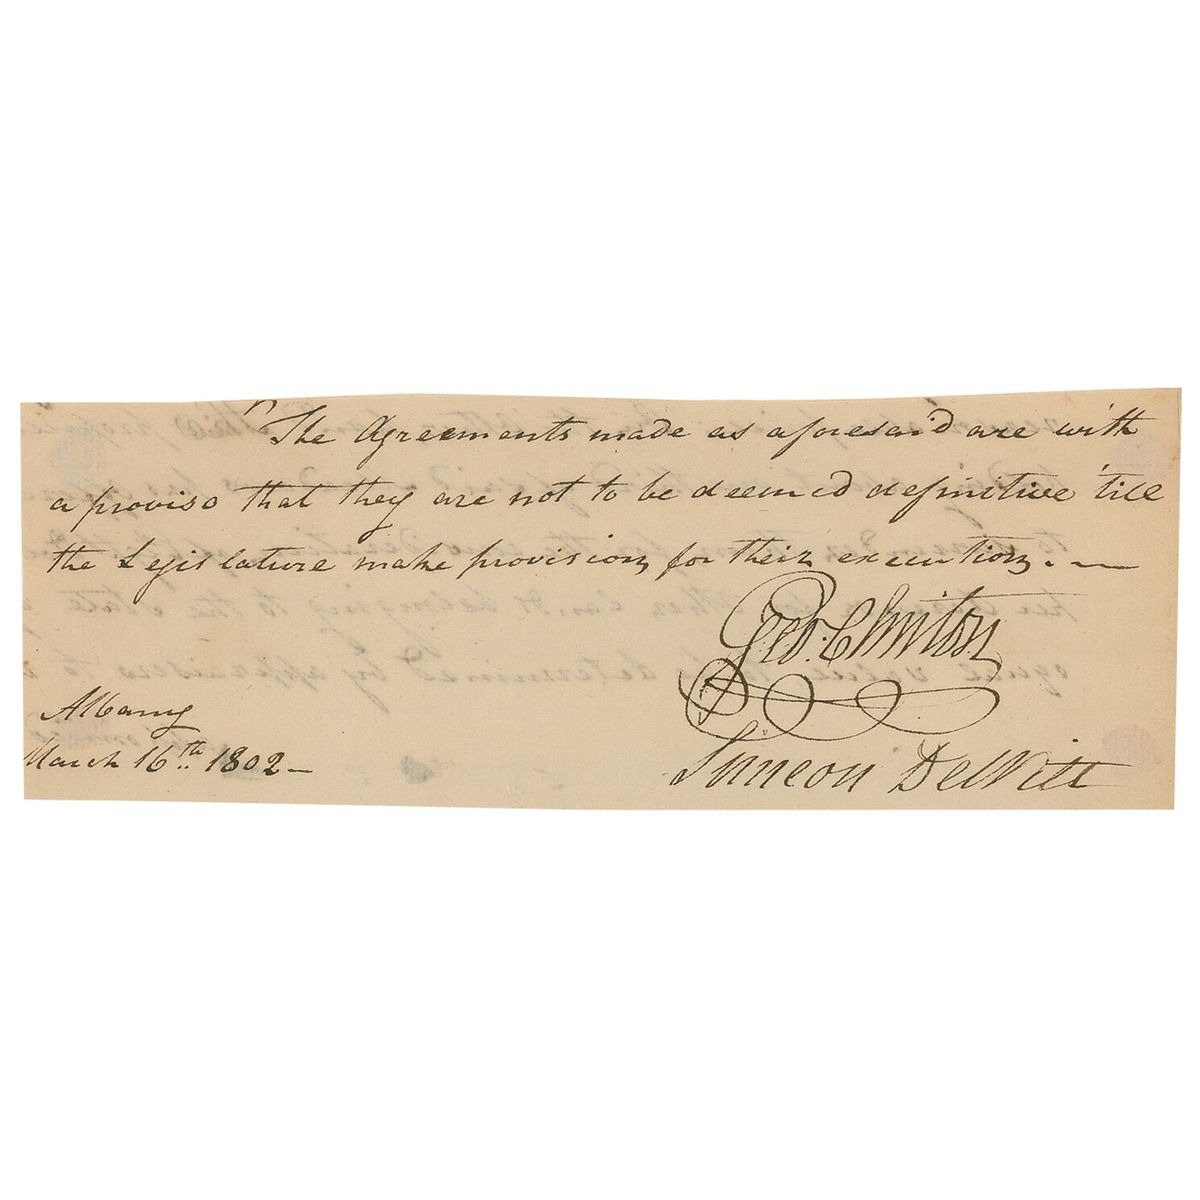 The Agreements made as aforesaid are with
a proviso that they are not to be deemed definitive 'till
the Legislature make provision for their execution. —
Geo: Clinton
Albany
March 16th 1802 —
Simeon DeWitt